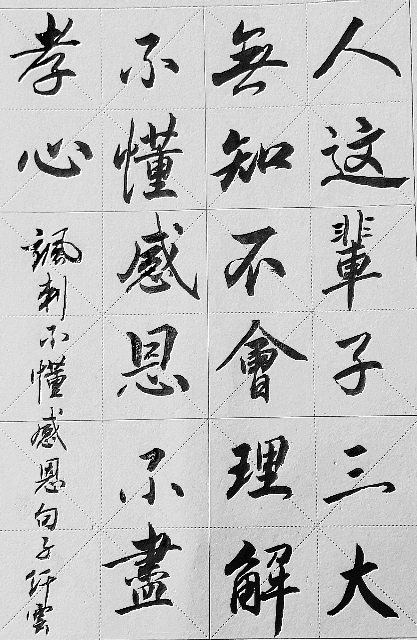 人这輩子三大
無知不會理解
不懂感恩不盡
孝心
諷刺不懂感恩句子纤雲